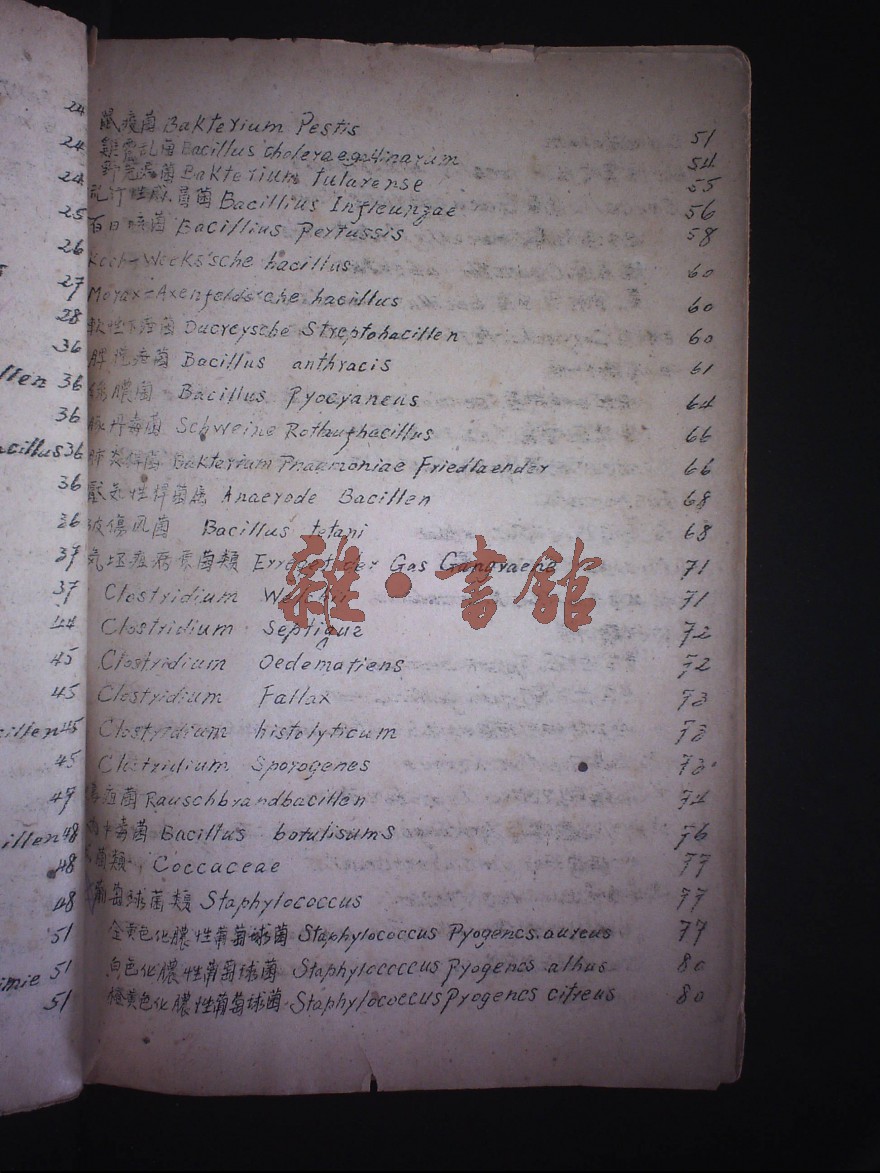 24
24
24
25
26
27
28
36
llen 36
36
acillus 36
36
36
37
37
44
45
45
cillen 45
45
47
illen 48
48
48
51
imie 51
51
鼠疫菌 Bakterium Pestis 51
雞霍乱菌 Bacillus choleraegallinarum 54
野兎病菌 Bakterium tularense 55
流行性感冒菌 Bacillius Infleunzae 56
百日咳菌 Bacillius Pertussis 58
Koch-Weeks'sche bacillus 60
Morax-Axenfeldsche bacillus 60
軟性下疳菌 Ducreysche Streptobacillen 60
脾脱疽菌 Bacillus anthracis 61
綠膿菌 Bacillus Pyocyaneus 64
豚丹毒菌 Schweine Rotlaufbacillus 66
肺炎桿菌 Bakterium Pnaumoniae Friedlaender 66
厭気性桿菌属 Anaerode Bacillen 68
破傷風菌 Bacillus tetani 68
気坯疽病原菌類 Erreger der Gas Gangraena 71
Clostridium Welchii 71
Clostridium Septique 72
Clostridium Oedematiens 72
Clostridium Fallax 73
Clostridium histolyticum 73
Clostridium Sporogenes 73
疽菌 Rauschbrandbacillen 74
中毒菌 Bacillus botulisums 76
菌類 Coccaceae 77
葡萄球菌類 Staphylococcus 77
金黄色化膿性葡萄球菌 Staphylococcus Pyogencs aureus 77
白色化膿性葡萄球菌 Staphylococccus Pyogencs albus 80
橙黄色化膿性葡萄球菌 Staphylococcus Pyogencs citreus 80
雜·書舘